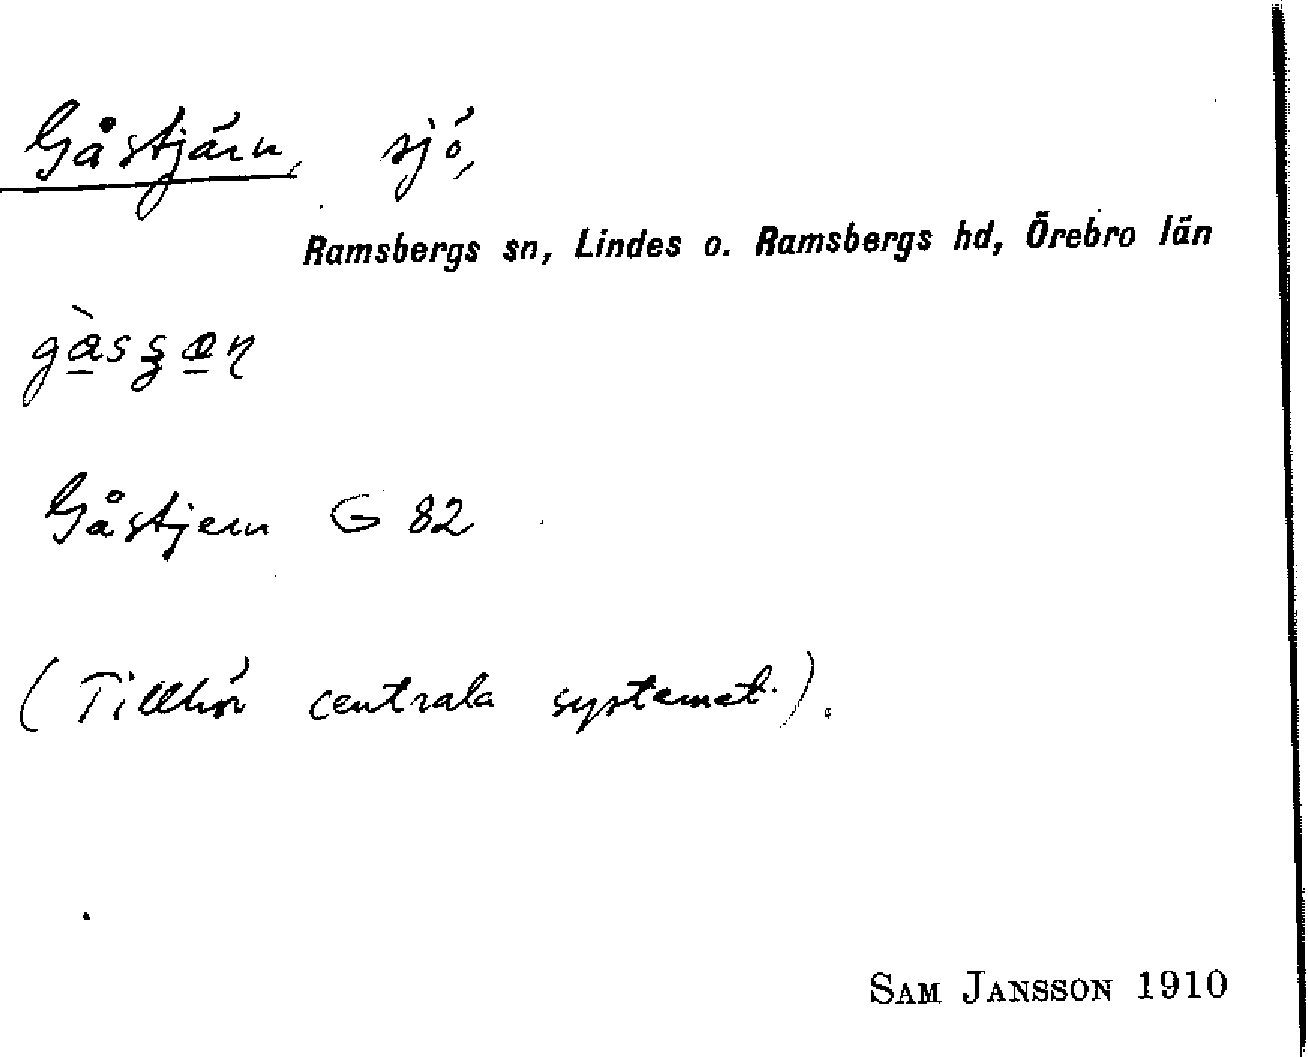 Gåstjärn, sjö,
Ramsbergs sn, Lindes o. Ramsbergs hd, Örebro län
Gåstjern G 82
(Tillhör centrala systemet.).
SAM JANSSON 1910